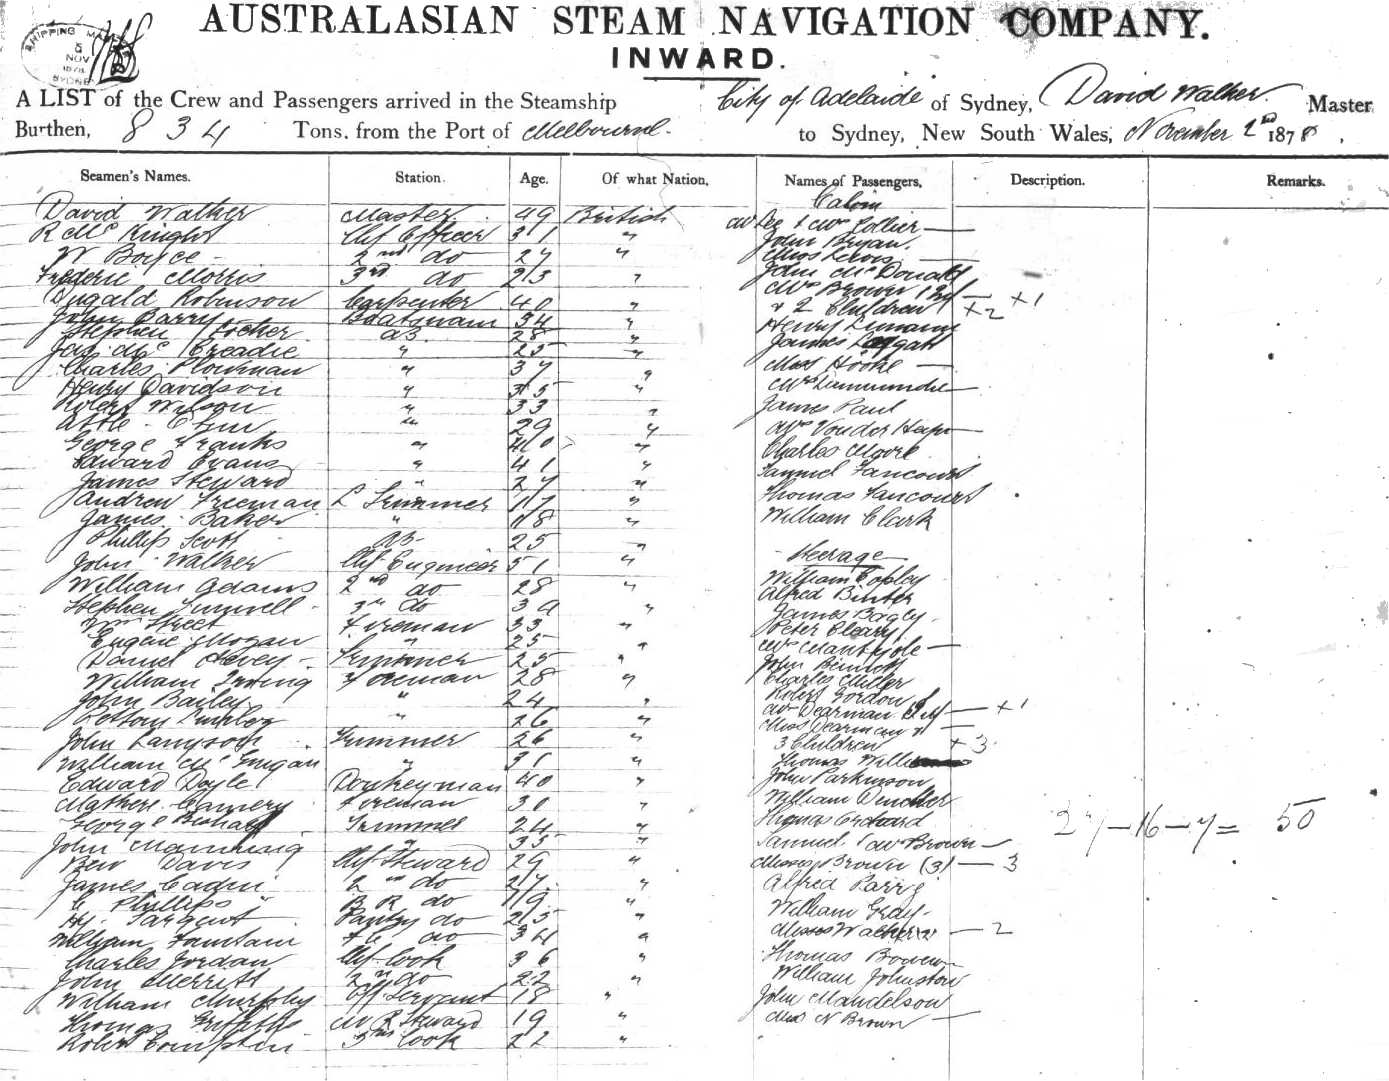 AUSTRALASIAN STEAM NAVIGATION COMPANY.
INWARD.
SHIPPING
5
NOV
1878
SYDNEY
A LIST of the Crew and Passengers arrived in the Steamship City of Adelaide of Sydney, David Walker Master
Burthen, 834 Tons, from the Port of Melbourne to Sydney, New South Wales, November 2nd 1878,
Seamen's Names. Station. Age. Of what Nation. Names of Passengers, Description. Remarks.
Cabin
David Walker Master 49 British
R Mc Knight Chf Officer 31 "
W Boyce 2nd do 27 "
Frederic Morris 3rd do 23 "
Dugald Robinson Carpenter 40 "
John Barry Boatswain 34 "
Stephen AB 28 "
Jas Mc Creadie " 25 "
Charles Plowman " 37 "
Henry Davidson " 35 "
Robert Wilson " 33 "
" 29 "
George Franks " 40 "
Edward Evans " 41 "
James Steward " 27 "
Andrew Freeman L Trimmer 17 "
James Baker " 18 "
Phillip Scott AB 25 "
John Walker Chf Engineer 51 "
William Adams 2nd do 28 "
Stephen 3rd do "
Wm Street Fireman 33 "
Eugene Mogan " 25 "
Daniel Trimmer 25 "
William Irving Fireman 28 "
John Bailey " 24 "
" 26 "
John Trimmer 26 "
William Mc Guigan " 31 "
Edward Doyle Donkeyman 40 "
Fireman 30 "
George Trimmer 24 "
John " 35 "
Ben Davis Chf Steward 29 "
James 2nd do 27 "
C Phillips B R do 19 "
Hy Sargent Pantry do 25 "
William Fountain F C do 34 "
Charles Jordan Chf Cook 36 "
John Merritt 2nd do 22 "
William Murphy Off Servant 18 "
Thomas Griffiths Steward 19 "
Robert Compton 3rd Cook 22 "
Mr & Mrs Collier
John Bryan
Miss Lewis
John McDonald
Mrs Brown
& 2 Children x 2 x 1
Henry
James Leggatt
Miss Hooke
Mrs
James Paul
Mrs Vonder
Charles Moore
Samuel Fancourt
Thomas Fancourt
William Clark
Steerage
William Copley
Alfred
James Bagley
Peter Cleary
Mrs
John Bennett
Charles Miller
Robert Gordon
Mrs Dearman x 1
Miss Dearman &
3 Children x 3
Thomas
John Parkinson
William
Thomas Orchard
27 - 16 - 7 = 50
Samuel & Mrs Brown
Misses Brown (3) - 3
Alfred Parry
William Gray
Misses Walker 2 - 2
Thomas Bowen
William Johnston
John Mandelson
Miss N Brown